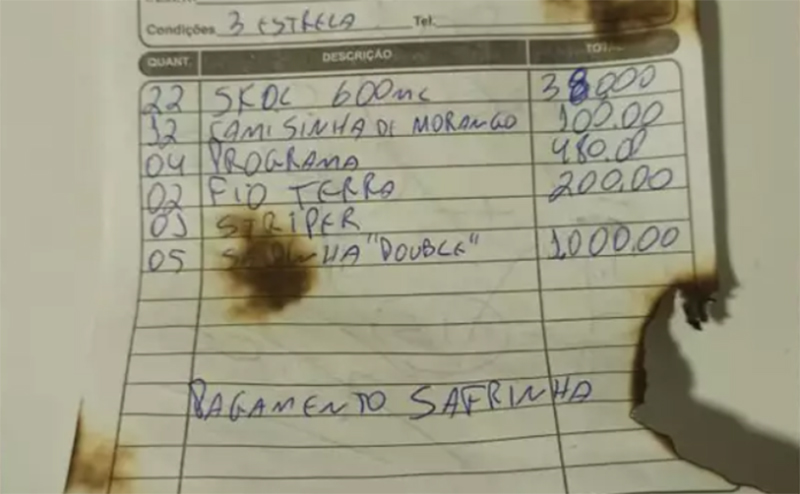 Condições 3 ESTRELA Tel.
QUANT. DESCRIÇÃO TOTAL
22 SKOL 600ML 38000
12 CAMISINHA DE MORANGO 100.00
04 PROGRAMA 480.00
02 FIO TERRA 200.00
STRIPER
05 "DOUBLE" 1000.00
PAGAMENTO SAFRINHA